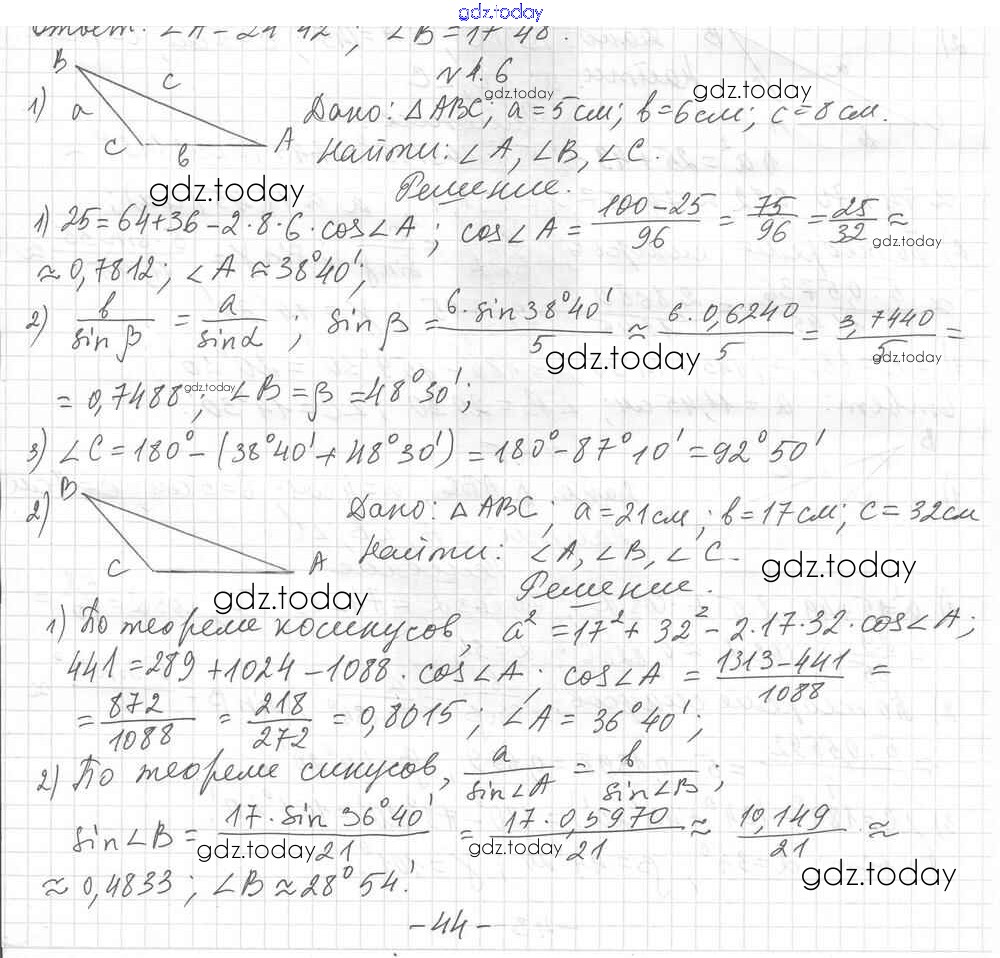 gdz.today
Ответ: ∠A = 21°42'; ∠B = 17°48'.
№ 1.6
1) B c a C b A
Дано: △ABC; a=5см; b=6см; c=8см.
Найти: ∠A, ∠B, ∠C.
gdz.today gdz.today
gdz.today
Решение.
1) 25=64+36-2·8·6·cos∠A; cos∠A = (100-25)/96 = 75/96 = 25/32 ≈
gdz.today
≈ 0,7812; ∠A ≈ 38°40';
2) b/sinβ = a/sinα; sinβ = (6·sin38°40')/5 ≈ (6·0,6240)/5 = 3,7440/5 =
gdz.today gdz.today
= 0,7488; ∠B = β = 48°30';
gdz.today
3) ∠C = 180° - (38°40' + 48°30') = 180° - 87°10' = 92°50'
2) B C A
Дано: △ABC; a=21см; b=17см; c=32см
Найти: ∠A, ∠B, ∠C.
gdz.today
Решение.
gdz.today
1) По теореме косинусов, a² = 17² + 32² - 2·17·32·cos∠A;
441 = 289 + 1024 - 1088·cos∠A; cos∠A = (1313-441)/1088 =
= 872/1088 = 218/272 = 0,8015; ∠A = 36°40';
2) По теореме синусов, a/sin∠A = b/sin∠B;
sin∠B = (17·sin 36°40')/21 = (17·0,5970)/21 ≈ 10,149/21 ≈
gdz.today gdz.today
≈ 0,4833; ∠B ≈ 28°54'.
gdz.today
-44-